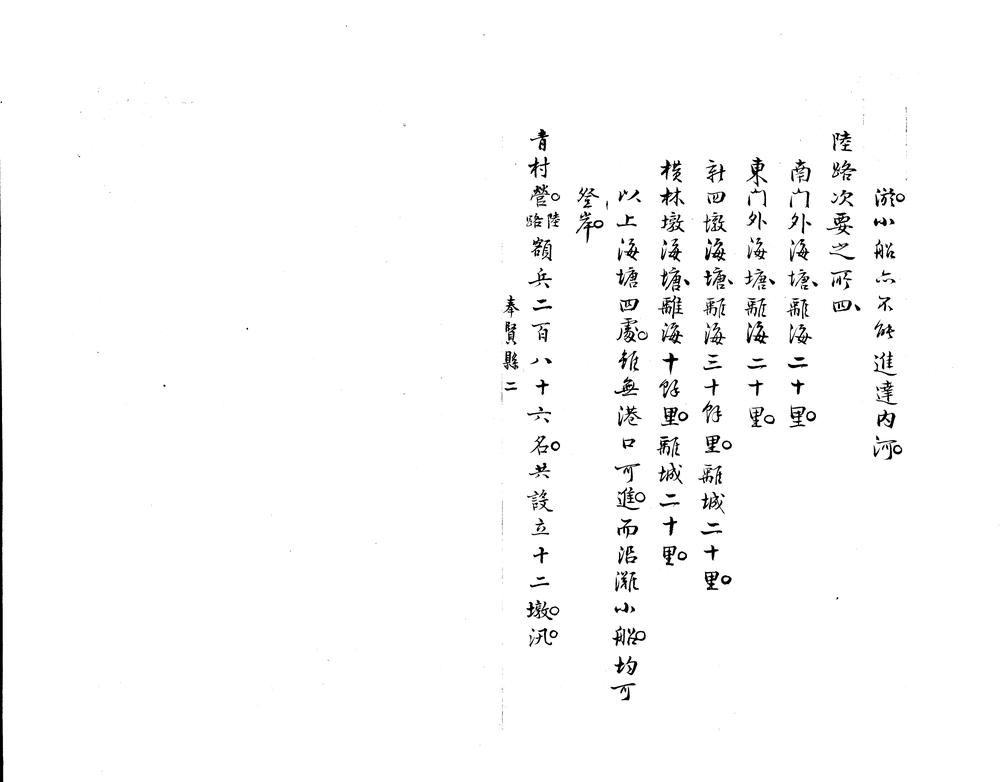 淤。小船亦不能進達內河。
陸路次要之所四、
南门外海塘、離海二十里。
東门外海塘、離海二十里。
新四墩海塘、離海三十餘里。離城二十里。
橫林墩海塘、離海十餘里。離城二十里。
以上海塘四處。雖無港口可進。而沿灘小船。均可
登岸。
青村營。陸路額兵二百八十六名。共設立十二墩。汛。
奉賢縣二